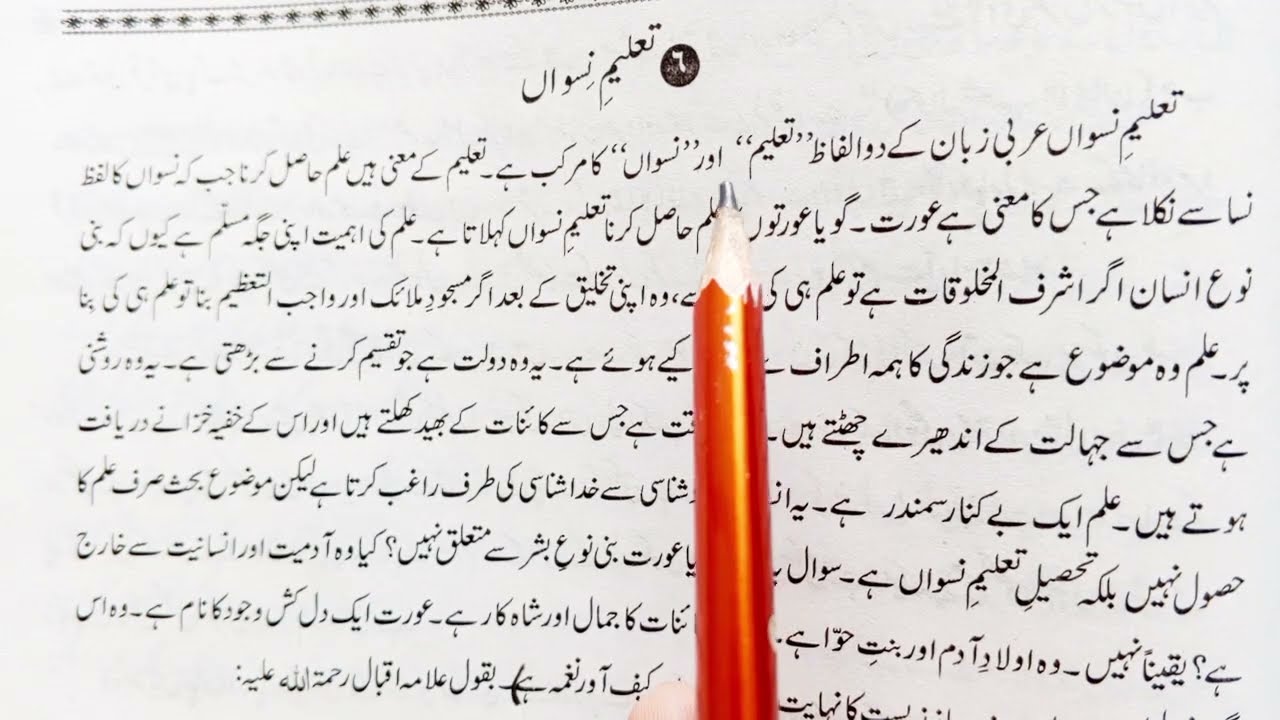 ۶ تعلیمِ نِسواں
تعلیمِ نسواں عربی زبان کے دو الفاظ ’’تعلیم‘‘ اور ’’نسواں‘‘ کا مرکب ہے۔ تعلیم کے معنی ہیں علم حاصل کرنا جب کہ نسواں کا لفظ
نسا سے نکلا ہے جس کا معنی ہے عورت۔ گویا عورتوں علم حاصل کرنا تعلیمِ نسواں کہلاتا ہے۔ علم کی اہمیت اپنی جگہ مسلّم ہے کیوں کہ بنی
نوع انسان اگر اشرف المخلوقات ہے تو علم ہی کی سے، وہ اپنی تخلیق کے بعد اگر مسجودِ ملائک اور واجب التعظیم بنا تو علم ہی کی بِنا
پر۔ علم وہ موضوع ہے جو زندگی کا ہمہ اطراف کیے ہوئے ہے۔ یہ وہ دولت ہے جو تقسیم کرنے سے بڑھتی ہے۔ یہ وہ روشنی
ہے جس سے جہالت کے اندھیرے چھٹتے ہیں۔ ہے جس سے کائنات کے بھید کھلتے ہیں اور اس کے خفیہ خزانے دریافت
ہوتے ہیں۔ علم ایک بے کنار سمندر ہے۔ یہ سے خدا شناسی کی طرف راغب کرتا ہے لیکن موضوع بحث صرف علم کا
حصول نہیں بلکہ تحصیلِ تعلیمِ نسواں ہے۔ سوال عورت بنی نوعِ بشر سے متعلق نہیں؟ کیا وہ آدمیت اور انسانیت سے خارج
ہے؟ یقیناً نہیں۔ وہ اولادِ آدم اور بنتِ حوّا ہے۔ کا جمال اور شاہ کار ہے۔ عورت ایک دل کش وجود کا نام ہے۔ وہ اس
کا نہایت کیف آور نغمہ ہے۔ بقول علامہ اقبال رحمۃ اللہ علیہ: